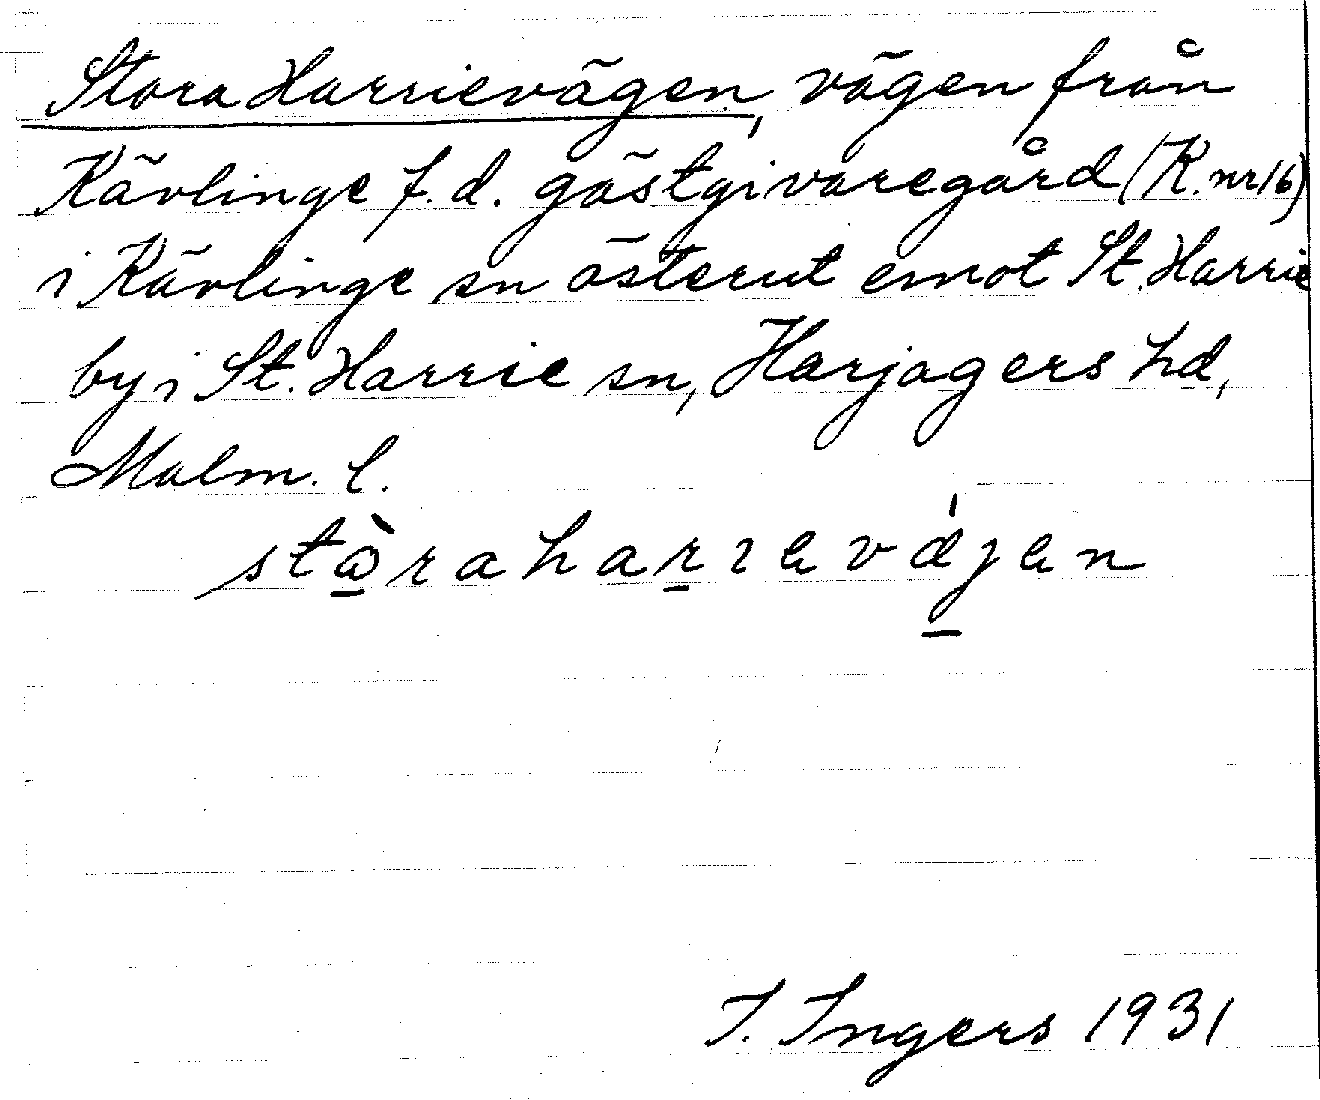 Stora Harrievägen, vägen från
Kävlinge f.d. gästgivaregård (K. nr 16)
i Kävlinge sn österut emot St. Harrie
by i St. Harrie sn, Harjagers hd,
Malm. l.
stɷ̀raharıavájan
I. Ingers 1931